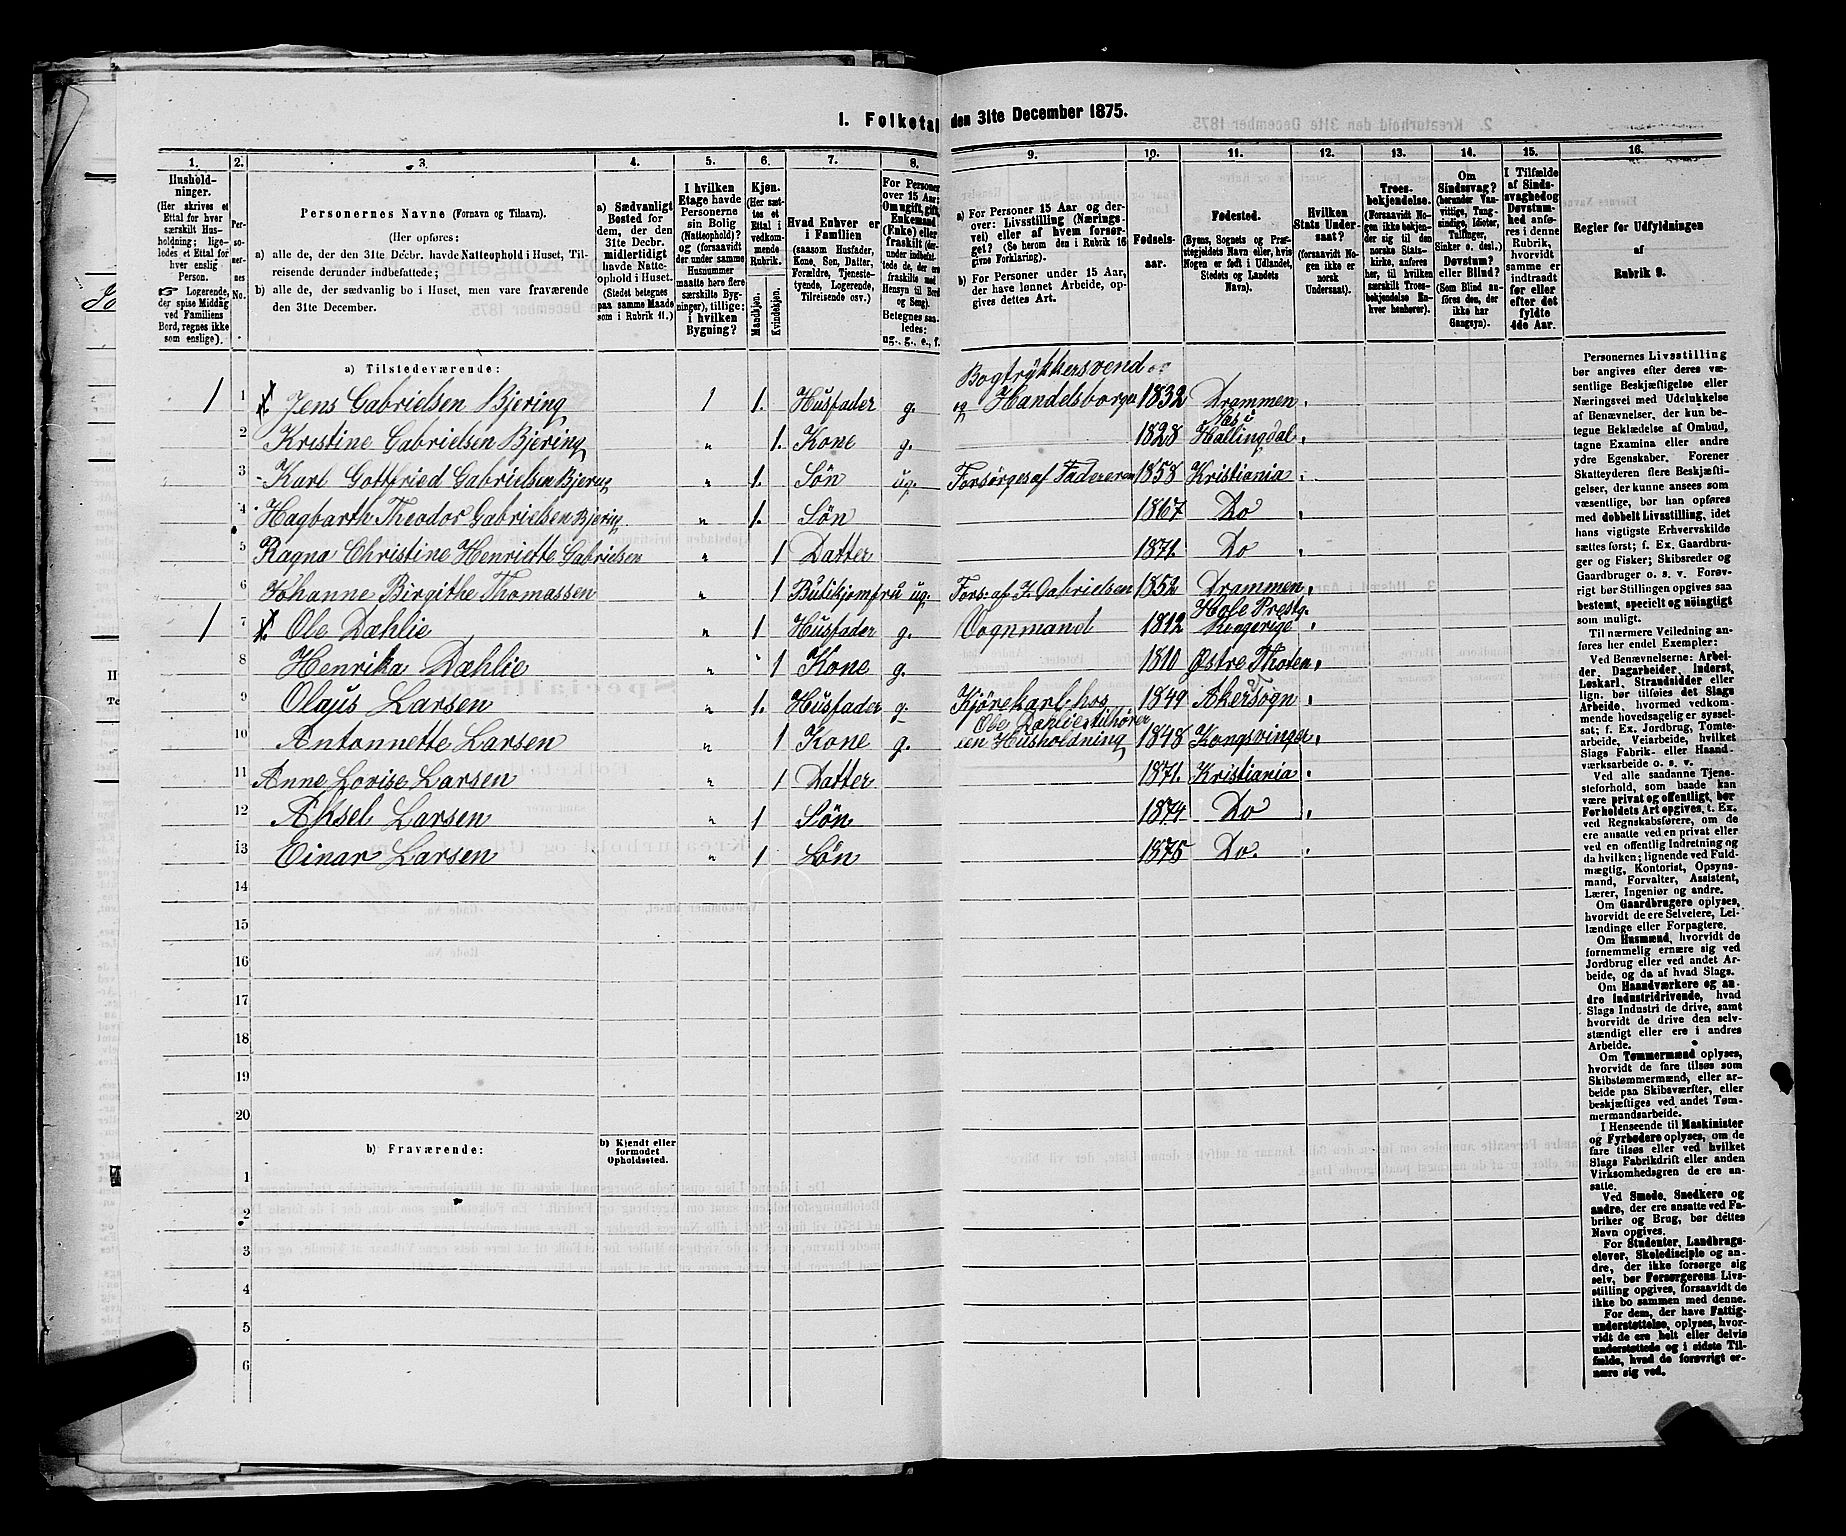 1. Folketal den 31te December 1875.
1. 2. 3. 4. 5. 6. 7. 8. 9. 10. 11. 12. 13. 14. 15. 16.
Husholdninger.
(Her skrives et
Ettal for hver
særskilt Husholdning;
ligeledes et Ettal for
hver enslig
Person.
Logerende,
der spise Middag
ved Familiens
Bord, regnes ikke
som enslige).
Personernes No.
Personernes Navne (Fornavn og Tilnavn).
(Her opføres:
a) alle de, der den 31te Decbr. havde Natteophold i Huset, Tilreisende
derunder indbefattede;
b) alle de, der sædvanlig bo i Huset, men vare fraværende
den 31te December.
a) Sædvanligt
Bosted for
dem, der den
31te Decbr.
midlertidigt
havde Natteophold
i Huset.
(Stedet betegnes
paa samme Maade
som i Rubrik 11.)
I hvilken
Etage havde
Personerne
sin Bolig
(Natteophold)?
og (forsaavidt
der under samme
Husnummer
maatte høre flere
særskilte Bygninger),
tillige:
i hvilken
Bygning?
Kjøn.
(Her sættes
et
Ettal i
vedkommende
Rubrik.
Mandkjøn.
Kvindekjøn.
Hvad Enhver er
i Familien
(saasom Husfader,
Kone, Søn, Datter,
Forældre, Tjenestetyende,
Logerende,
Tilreisende osv.)
For Personer
over 15 Aar:
Om ugift, gift,
Enkemand
(Enke) eller
fraskilt (derunder
indbefattede
de, der ere
fraskilte med
Hensyn til Bord
og Seng).
Betegnes saaledes:
ug., g., e., f.
a) For Personer 15 Aar og derover:
Livsstilling (Næringsvei)
eller af hvem forsørget?
(Se herom den i Rubrik 16
givne Forklaring).
b) For Personer under 15 Aar,
der have lønnet Arbeide, opgives
dettes Art.
Fødselsaar.
Fødested.
(Byens, Sognets og Præstegjeldets
Navn eller, hvis
Nogen er født i Udlandet,
Stedets og Landets
Navn).
Hvilken
Stats Undersaat?
(forsaavidt Nogen
ikke er
norsk
Undersaat).
Troesbekjendelse.
(Forsaavidt Nogen
ikke bekjender
sig til den
norske Statskirke,
anføres
her, til hvilken
særskilt Troesbekjendelse
Enhver
henhører).
Om
Sindssvag?
(herunder Vanvittige,
Tungsindige,
Idioter,
Tullinger,
Sinker o. desl.)
Døvstum?
eller Blind?
(Som Blind anføres
den, der
ikke har
Gangsyn).
I Tilfælde
af Sindssvaghed
og
Døvstumhed
anføres
i denne
Rubrik,
hvorvidt
samme er
indtraadt
før eller
efter det
fyldte
4de Aar.
Regler for Udfyldningen
af
Rubrik 9.
a) Tilstedeværende:
Bogtrykkersvend
1 1 Jens Gabrielsen Bjering 1 1. Husfader g. og Handelsborger 1832 Drammen
Næs i
2 Kristine Gabrielsen Bjering " 1. Kone g. 1828 Hallingdal
3 Karl Gottfried Gabrielsen Bjering " 1. Søn ug. Forsørges af Faderen 1858 Kristiania
4 Hagbarth Theodor Gabrielsen Bjering " 1. Søn 1867 Do
5 Ragna Christine Henriette Gabrielsen " 1 Datter 1871 Do
6 Johanne Birgithe Thomassen " 1 Butikjomfru ug. Fors. af J. Gabrielsen 1852 Drammen
Hole Prestg.
1 7 Ole Dæhlie " 1 Husfader g. Vognmand 1812 Ringerige
8 Henrika Dæhlie " 1 Kone g. 1810 Østre Thoten
9 Olaus Larsen " 1. Husfader g. Kjørekarl hos 1849 Akersogn
Ole Dæhlie tilhører
10 Antonnette Larsen " 1 Kone g. en Husholdning 1848 Kongsvinger
11 Anne Lovise Larsen " 1 Datter 1871. Kristiania
12 Aksel Larsen " 1 Søn 1874 Do
13 Einar Larsen " 1 Søn 1875 Do.
14
15
16
17
18
19
20
b) Fraværende:
b) Kjendt eller
formodet
Opholdssted.
1
2
3
4
5
6
Personernes Livsstilling
bør angives efter deres væsentlige
Beskjæftigelse eller
Næringsvei med Udelukkelse
af Benævnelser, der kun betegne
Beklædelse af Ombud,
tagne Examina eller andre
ydre Egenskaber. Forener
Skatteyderen flere Beskjæftigelser,
der kunne ansees som
væsentlige, bør han opføres
med dobbelt Livsstilling, idet
hans vigtigste Erhvervskilde
sættes først; f. Ex. Gaardbruger
og Fisker; Skibsreder og
Gaardbruger o. s. v. Forøvrigt
bør Stillingen opgives saa
bestemt, specielt og nøiagtigt
som muligt.
Til nærmere Veiledning anføres
her endel Exempler:
Ved Benævnelserne: Arbeider,
Dagarbeider, Inderst,
Løskarl, Strandsidder eller
lign. bør tilføies det Slags
Arbeide, hvormed vedkommende
hovedsagelig er sysselsat;
f. Ex. Jordbrug, Tomtearbeide,
Veiarbeide, hvilket
Slags Fabrik- eller Haandværksarbeide
o. s. v.
Ved alle saadanne Tjenesteforhold,
som baade kan
være privat og offentligt, bør
Forholdets Art opgives, t. Ex.
ved Regnskabsførere, om de
ere ansatte ved en privat eller
ved en offentlig Indretning og
da hvilken; lignende ved Fuldmægtig,
Kontorist, Opsynsmand,
Forvalter, Assistent,
Lærer, Ingeniør og andre.
Om Gaardbrugere oplyses,
hvorvidt de ere Selveiere, Leilændinge
eller Forpagtere.
Om Husmænd, hvorvidt de
fornemmelig ernære sig ved
Jordbrug eller ved andet Arbeide,
og da af hvad Slags.
Om Haandværkere og andre
Industridrivende, hvad
Slags Industri de drive, samt
hvorvidt de drive den selvstændigt
eller ere i andres
Arbeide.
Om Tømmermænd oplyses,
hvorvidt de fare tilsøs som
Skibstømmermænd, eller arbeide
paa Skibsværfter, eller
beskjæftiges ved andet Tømmermandsarbeide.
I Henseende til Maskinister
og Fyrbødere oplyses, om de
fare tilsøs eller ved hvilket
Slags Fabrikdrift eller anden
Virksomhedsgren de ere ansatte.
Ved Smede, Snedkere og
andre, der ere ansatte ved Fabriker
og Brug, bør dettes
Navn opgives.
For Studenter, Landbrugselever,
Skoledisciple og andre,
der ikke forsørge sig
selv, bør Forsørgerens Livsstilling
opgives, forsaavidt de
ikke bo sammen med denne.
For dem, der have Fattigunderstøttelse,
oplyses, hvorvidt
de ere helt eller delvis
understøttede og i sidste Tilfælde,
hvad de forøvrigt ernære
sig ved.